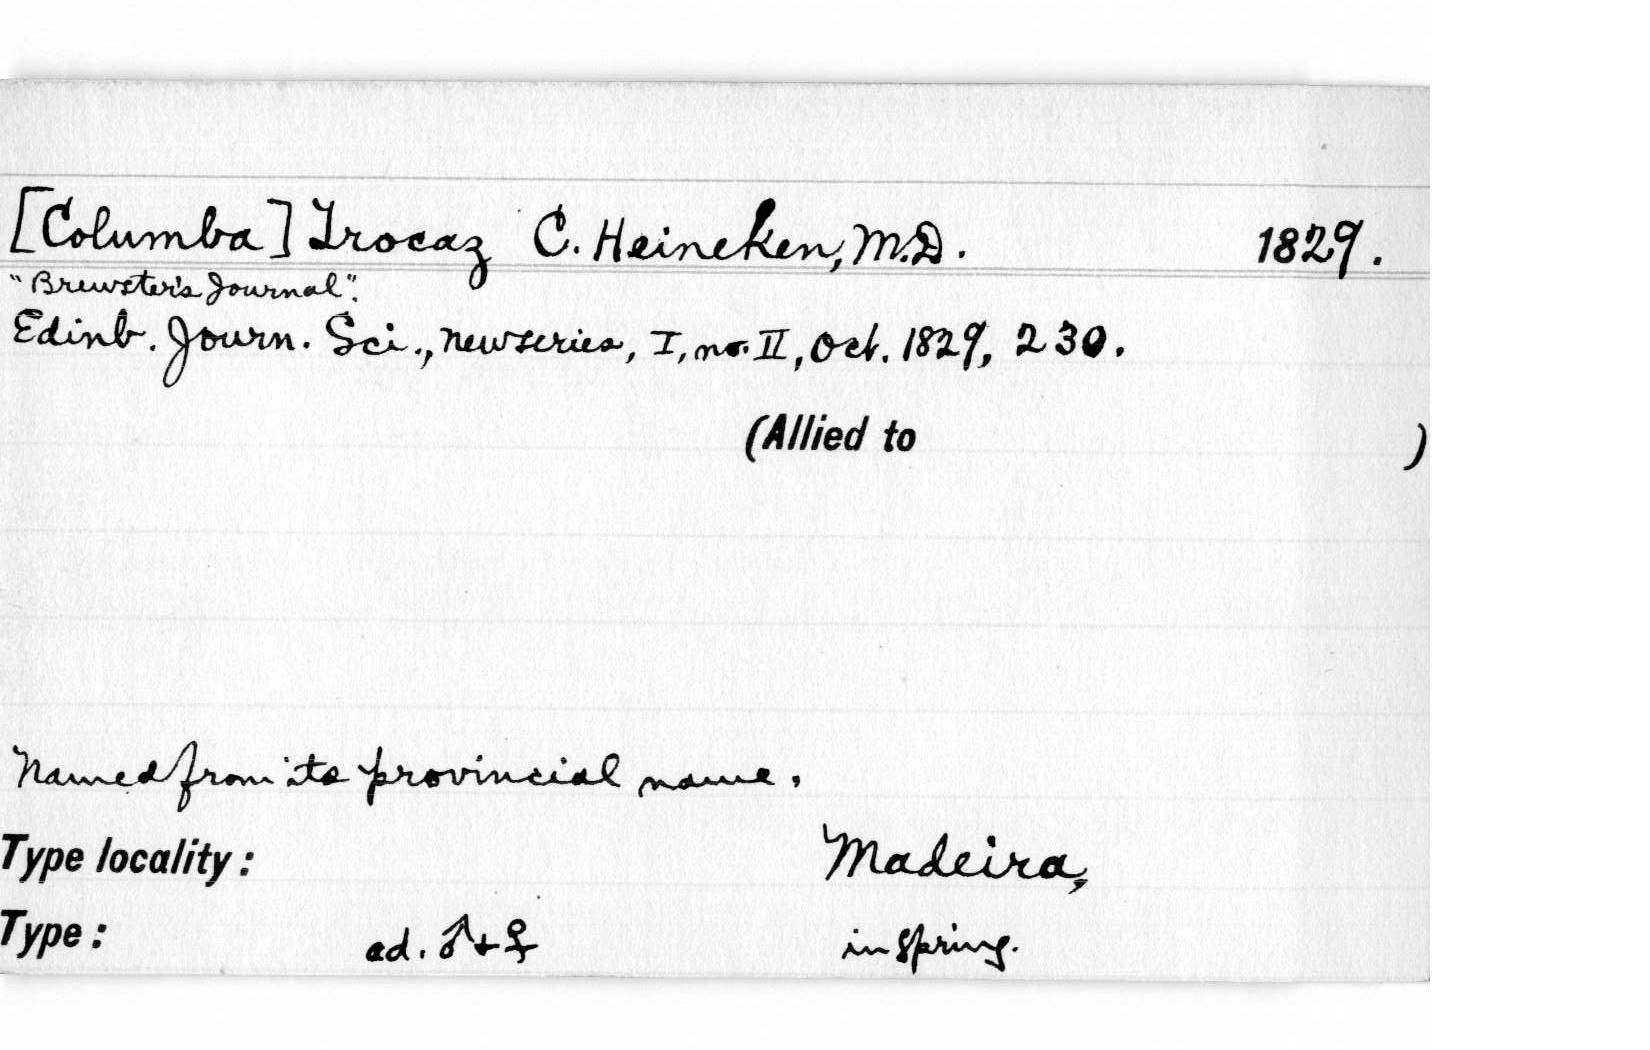 [Columba] Trocaz C. Heineken, M.D. 1829.
"Brewster's Journal".
Edinb. Journ. Sci., new series, I, no. II, Oct. 1829, 230.
(Allied to )
Named from its provincial name.
Type locality: Madeira,
Type: ad. ♂ + ♀ in spring.